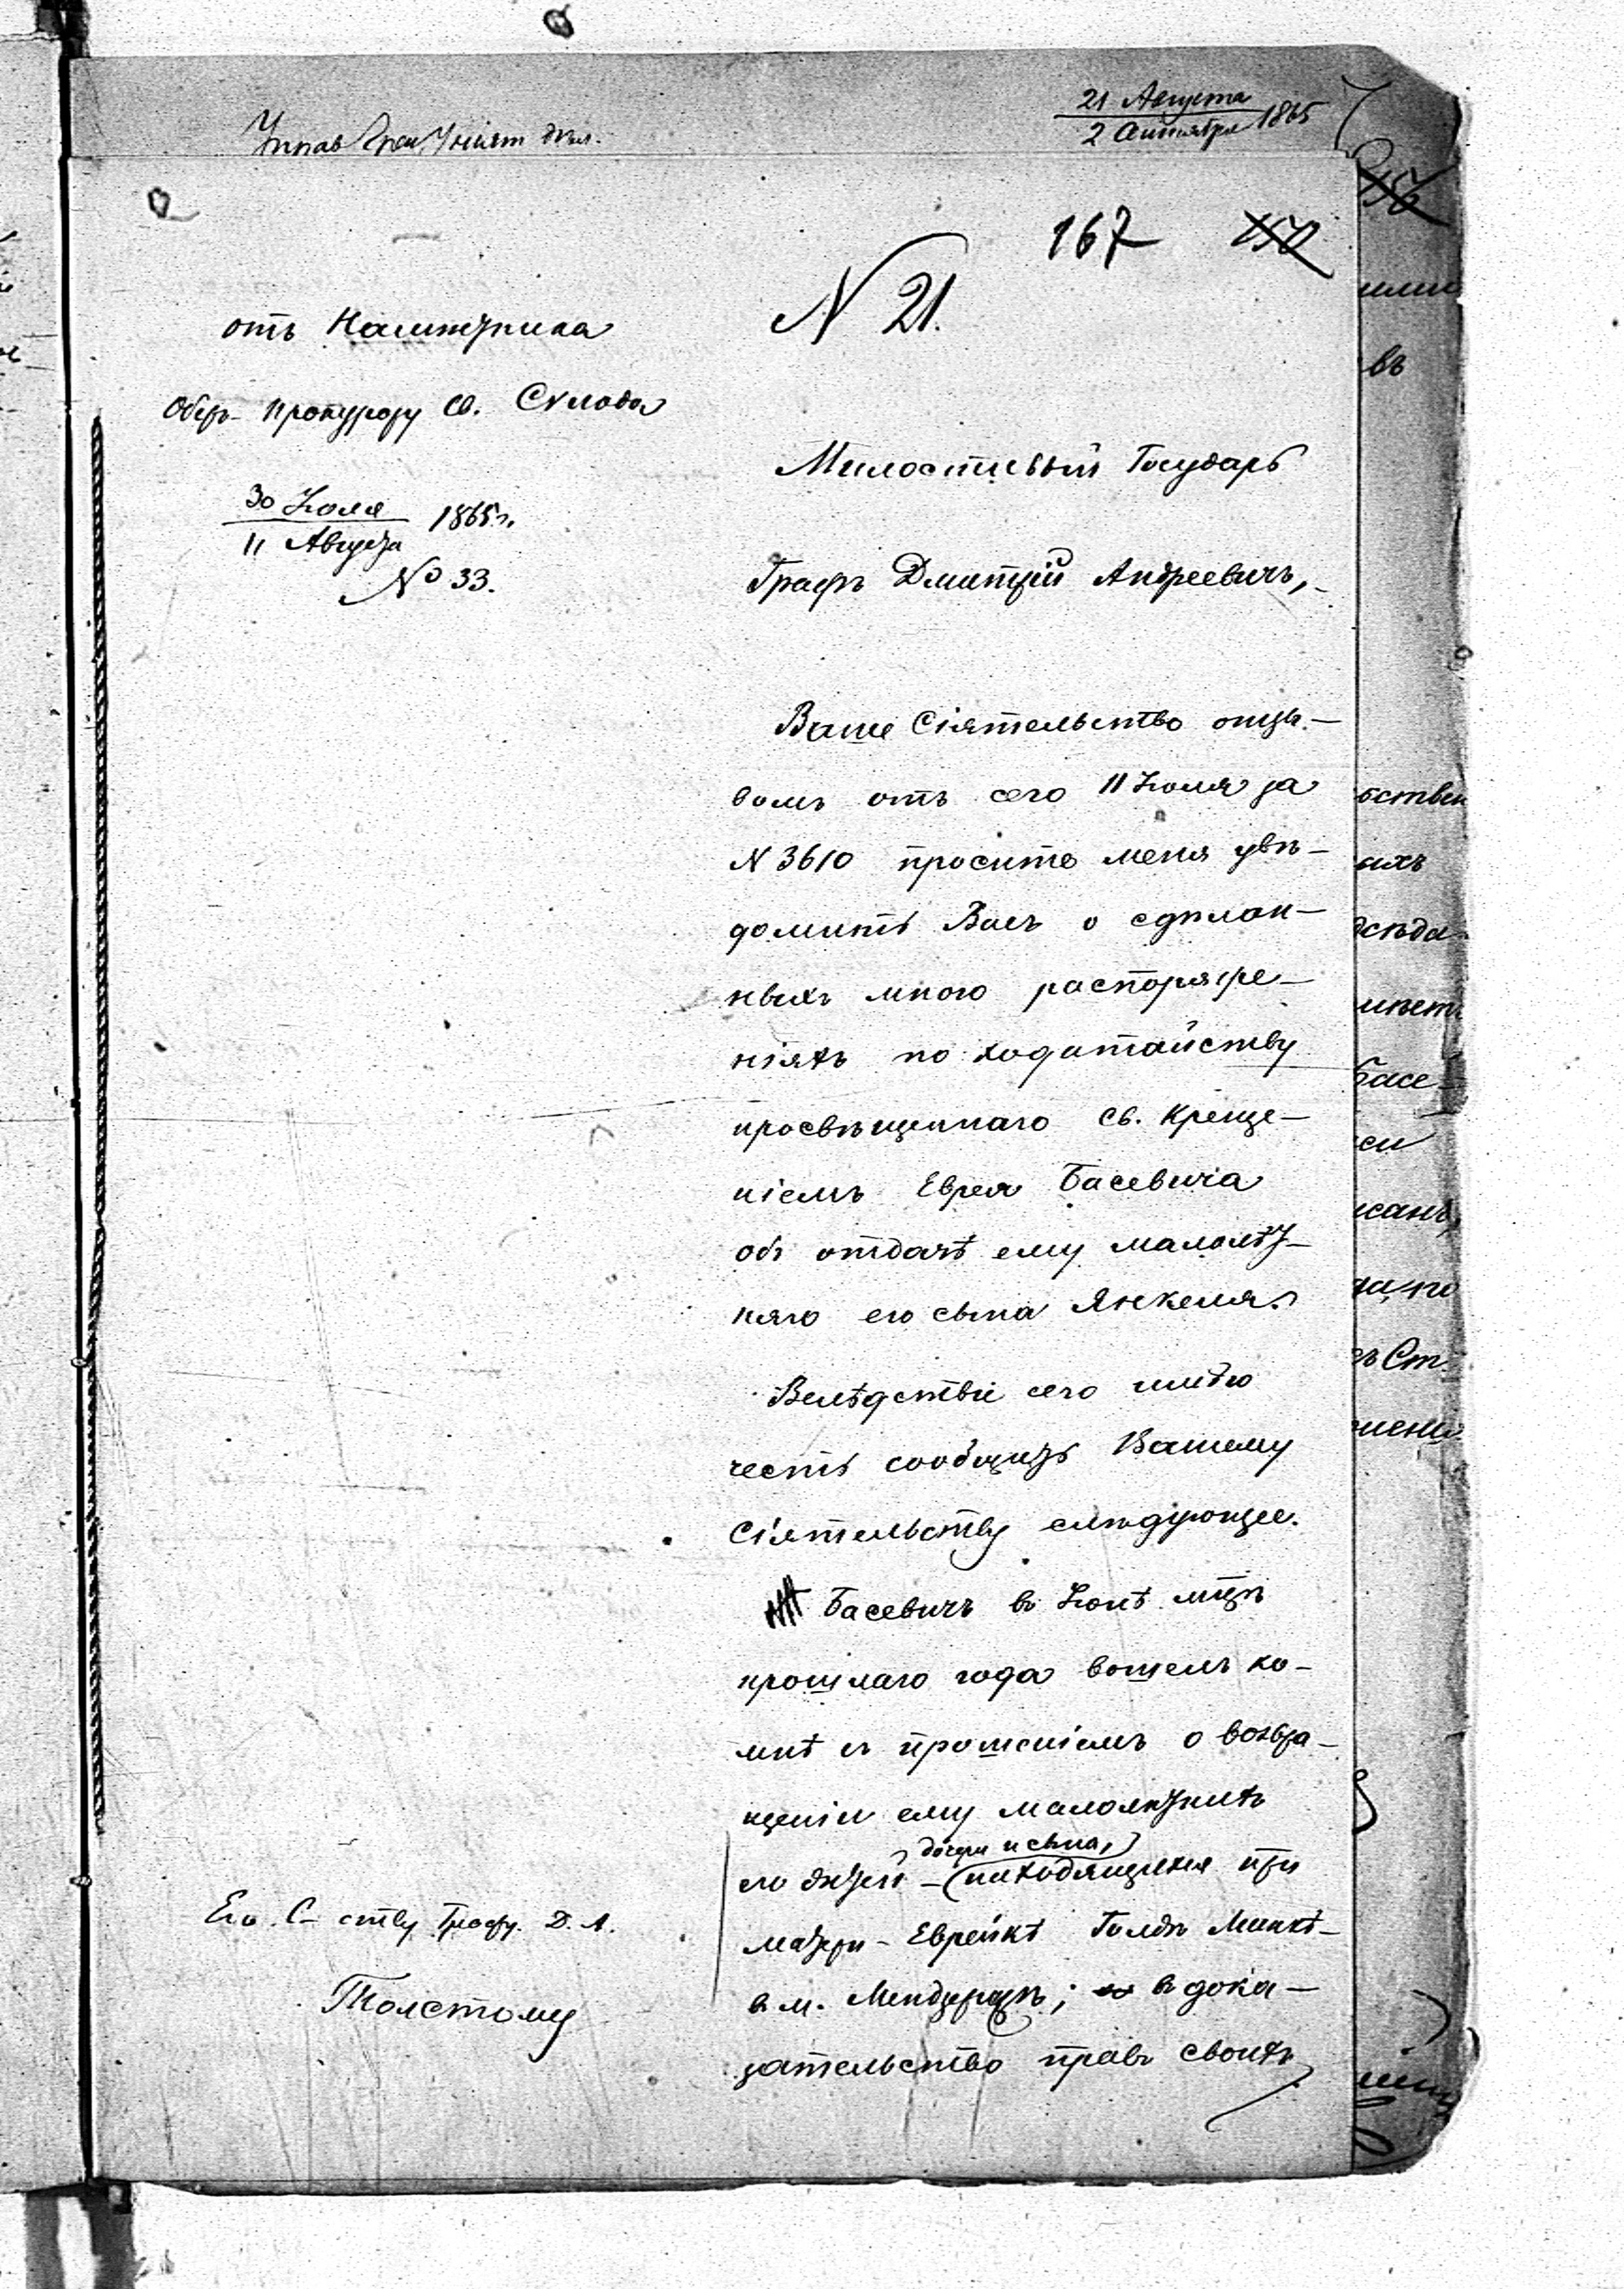 21 Августа
2 Сентября 1865
167
N 21.
отъ Намѣстника
Оберъ-прокурору Св. Сѵнода
30 Іюля
11 Августа 1865 г.
№ 33.
Милостивый Государь
Графъ Дмитрій Андреевичъ,
Ваше Сіятельство отзы-
вомъ отъ сего 11 Іюля за
N 3610 просите меня увѣ-
домить Васъ о сдѣлан-
ныхъ мною распоряже-
ніяхъ по ходатайству
просвѣщеннаго Св. Креще-
ніемъ Еврея Басевича
объ отдачѣ ему малолѣт-
няго его сына Янкеля.
Вслѣдствіе сего имѣю
честь сообщить Вашему
Сіятельству слѣдующее.
Басевичъ въ Іюнѣ мцѣ
прошлаго года вошелъ ко
мнѣ съ прошеніемъ о возвра-
щеніи ему малолѣтнихъ
дочери и сына,
его дѣтей – находящихся при
матери – Еврейкѣ Голдѣ Минкѣ
в м. Мендзержѣ; в дока-
зательство правъ своихъ
Его С-ству Графу Д. А.
Толстому